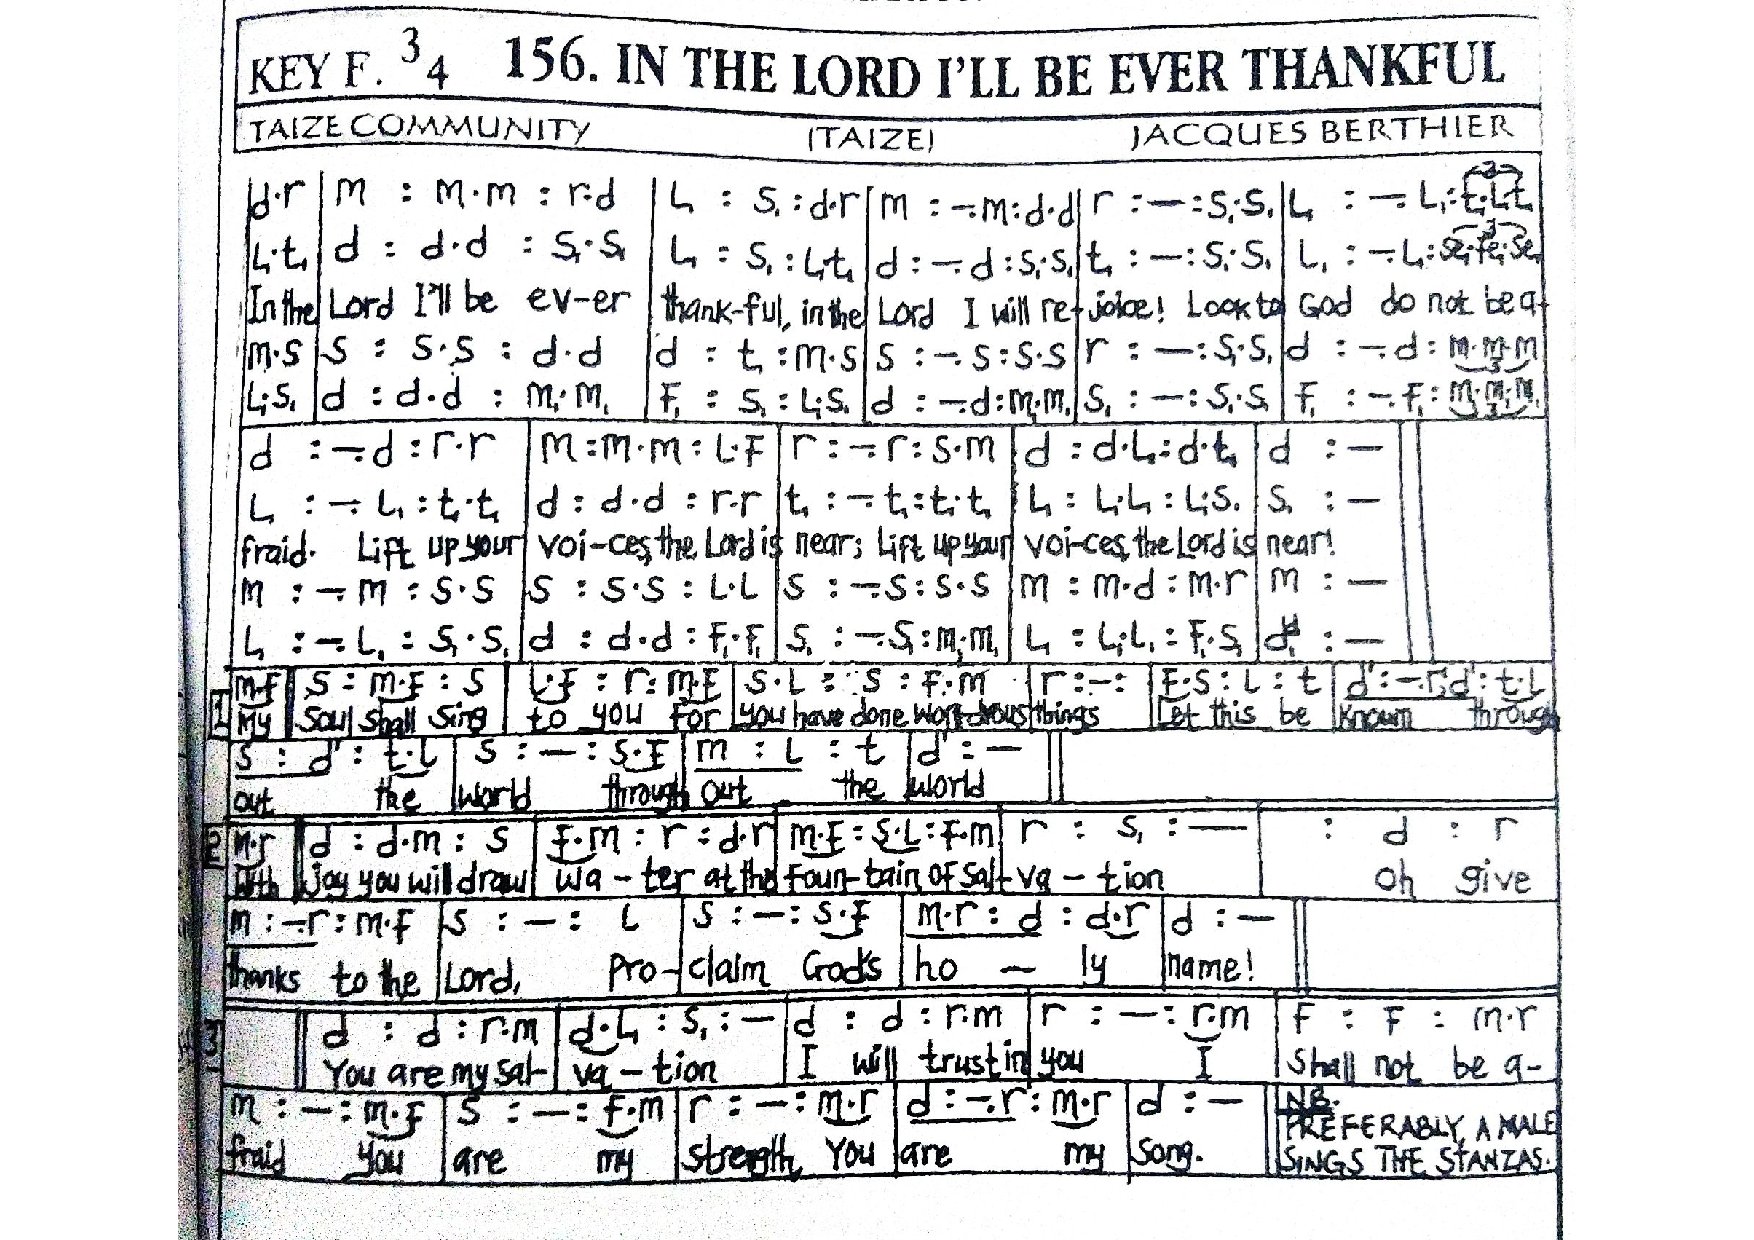 KEY F. 3/4 156. IN THE LORD I'LL BE EVER THANKFUL
TAIZE COMMUNITY (TAIZE) JACQUES BERTHIER
d.r | m : m.m : r.d | L, : S, : d.r | m : -. m : d.d | r : — : S,.S, | L, : -. L, : t,.L,.t,
L,.t, | d : d.d : S,.S, | L, : S, : L,.t, | d : -. d : S,.S, | t, : — : S,.S, | L, : -. L, : se,.fe,.se,
In the | Lord I'll be ev-er | thank-ful, in the | Lord I will re- | joice! Look to | God do not be a-
m.s | s : s.s : d.d | d : t, : m.s | s : -. s : s.s | r : — : S,.S, | d : -. d : m.m.m
L,.S, | d : d.d : m,.m, | F, : S, : L,.S, | d : -. d : m,.m, | S, : — : S,.S, | F, : -. F, : m,.m,.m,
d : -. d : r.r | m : m.m : L.F | r : -. r : s.m | d : d.L, : d.t, | d : —
L, : -. L, : t,.t, | d : d.d : r.r | t, : -. t, : t,.t, | L, : L,.L, : L,.S, | S, : —
fraid. Lift up your | voi-ces, the Lord is | near; Lift up your | voi-ces, the Lord is | near!
m : -. m : s.s | s : s.s : L.L | s : -. s : s.s | m : m.d : m.r | m : —
L, : -. L, : S,.S, | d : d.d : F,.F, | S, : -. S, : m,.m, | L, : L,.L, : F,.S, | d, : —
1 m.F | S : m.F : S | L.F : r : m.F | S.L : S : F.m | r : — : | F.S : L : t | d' : -. r' d' : t.L
My | Soul shall sing | to you for | you have done wondrous | things | Let this be | known through
S : d' : t.L | S : — : S.F | m : L : t | d' : —
out the | world through | out the | world
2 m.r | d : d.m : s | F.m : r : d.r | m.F : S.L : F.m | r : S, : — | : d : r
With | Joy you will draw | wa - ter at the | Foun-tain of Sal- | va - tion | Oh give
m : -. r : m.F | S : — : L | S : — : S.F | m.r : d : d.r | d : —
thanks to the | Lord, Pro- | claim God's | ho — ly | name!
3 | d : d : r.m | d.L, : S, : — | d : d : r.m | r : — : r.m | F : F : m.r
You are my sal- | va - tion | I will trust in | you I | Shall not be a-
m : — : m.F | S : — : F.m | r : — : m.r | d : -. r : m.r | d : — | NB.
PREFERABLY, A MALE
fraid you | are my | strength, You | are my | Song. | SINGS THE STANZAS.